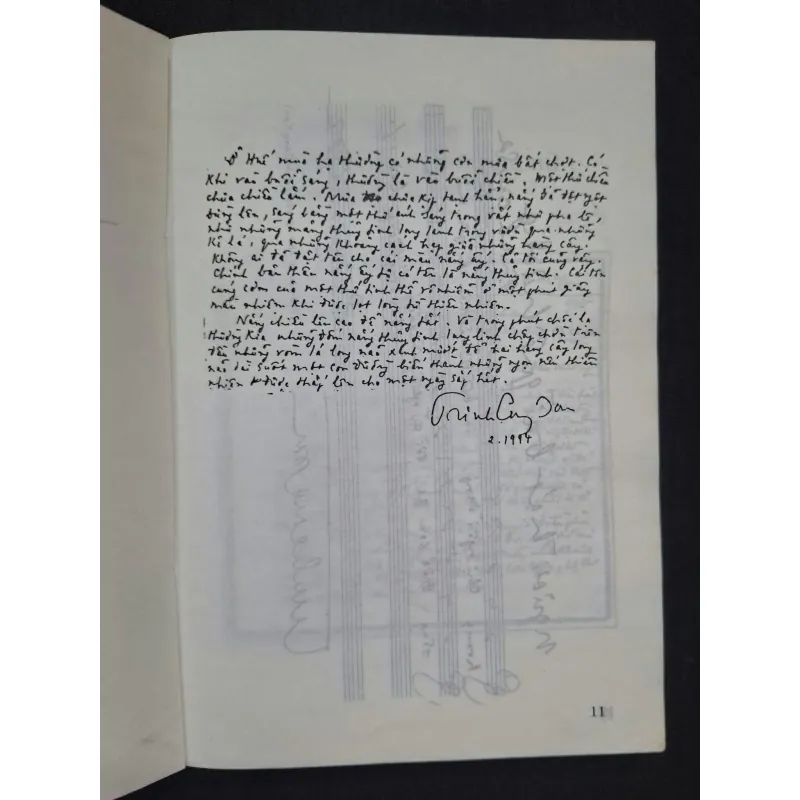 Ở Huế mùa hạ thường có những cơn mưa bất chợt. Có
khi vào buổi sáng, thường là vào buổi chiều. Một thứ chiều
chưa chiều lắm. Mưa chưa kịp tạnh hẳn, nắng đã đột ngột
bừng lên, sáng bằng một thứ ánh sáng trong vắt như pha lê,
như những mảng thủy tinh long lanh trọng qua những
kẽ lá, qua những khoảng cách hẹp giữa những hàng cây.
Không ai đã đặt tên cho cái màu nắng ấy. Cả tôi cũng vậy.
Chính bản thân nắng ấy đã có tên là nắng thủy tinh. Cái tên
cúng cơm của một thứ tinh thể vô nhiễm ở một phút giây
mầu nhiệm khi được lọt lòng từ thiên nhiên.
Nắng chiều lên cao để nắng tắt. Và trong phút chốc lạ
thường kia những đốm nắng thủy tinh lung linh chạy chơi trên
đầu những vòm lá long não xanh mướt để hai hàng cây long
não dài suốt một con đường biến thành những ngọn nến thiên
nhiên được thắp lên cho một ngày sắp hết.
Trịnh Công Sơn
2.1994
11